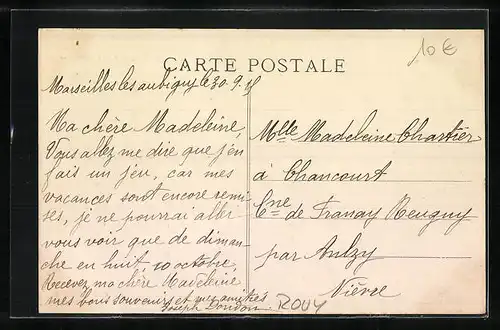 10 €
CARTE POSTALE
Marseilles les aubigny le 30.9.
Ma chère Madeleine,
Vous allez me dire que j'en
fais un jeu, car mes
vacances sont encore remi-
ses, je ne pourrai aller
vous voir que de diman-
che en huit, 10 octobre
Recevez ma chère Madeleine
mes bons souvenirs et mes amitiés
Joseph
Mlle Madeleine Chartier
à Chancourt
Cne de Franay Reugny
par Anlzy
Nièvre
ROUY